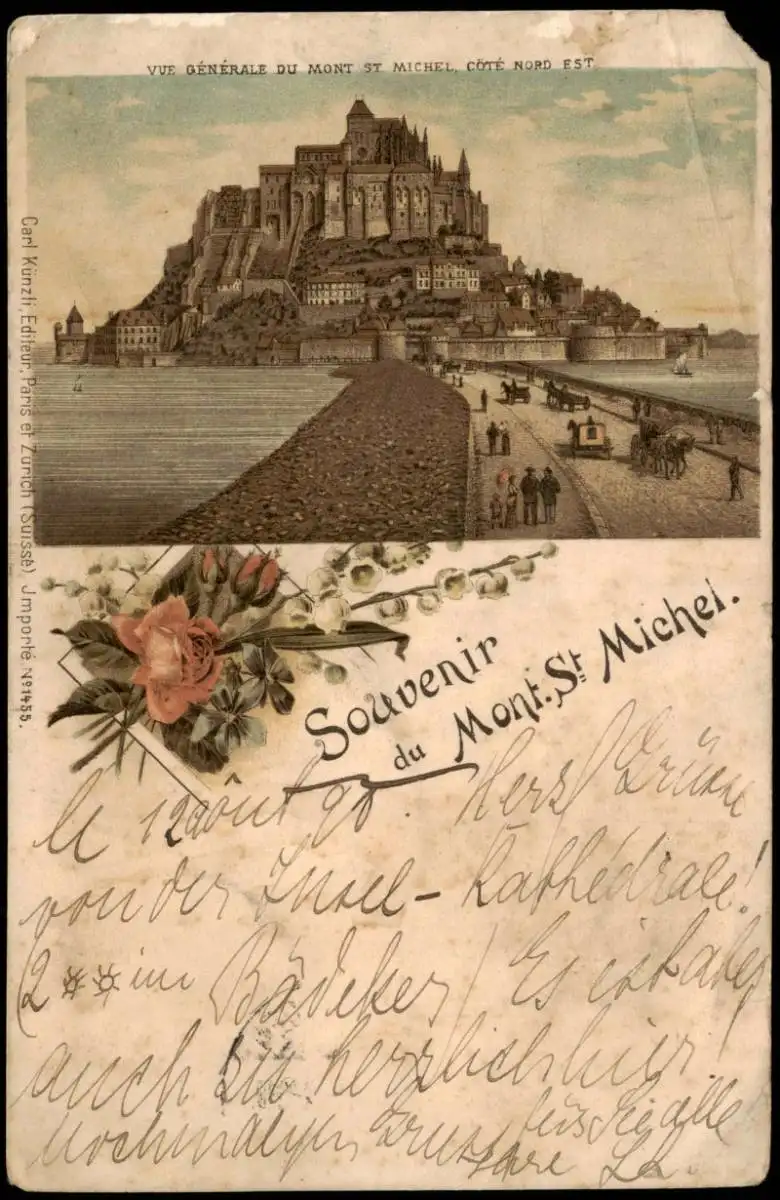 VUE GÉNÉRALE DU MONT ST MICHEL, CÔTÉ NORD EST
Carl Künzli, Editeur, Paris et Zürich (Suisse) Jmporté. No 1455.
Souvenir
du Mont-St Michel.
le 12 août 98. Herzl Grüsse
von der Insel-Kathédrale!
(2 ** im Bädeker) Es ist aber
auch zu herzlich hier!
Nochmalyen Grüsse für Sie alle